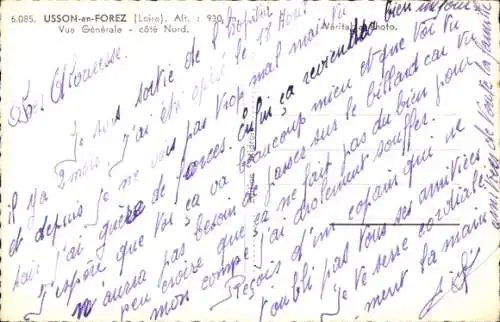 6.085. USSON-en-FOREZ (Loire). Alt. : 930 m.
Vue Générale - côté Nord.
Véritable Photo.
Je suis sortie de l'hôpital
il y a 2 mois. J'ai été opéré le 18 Août
et depuis je ne vois pas trop mal mais tu
sais j'ai guère de forces. Enfin ça reviendra bien un jour
J'espère que toi ça va beaucoup mieux et que toi tu
n'auras pas besoin de passer sur le billard car tu
peu croire que ça ne fait pas du bien pour
mon compte j'ai drolement souffer.
Reçois d'un copain qui ne
t'oubli pas tous ses amitiés
je te serre cordiale
ment la main
de toute la famille